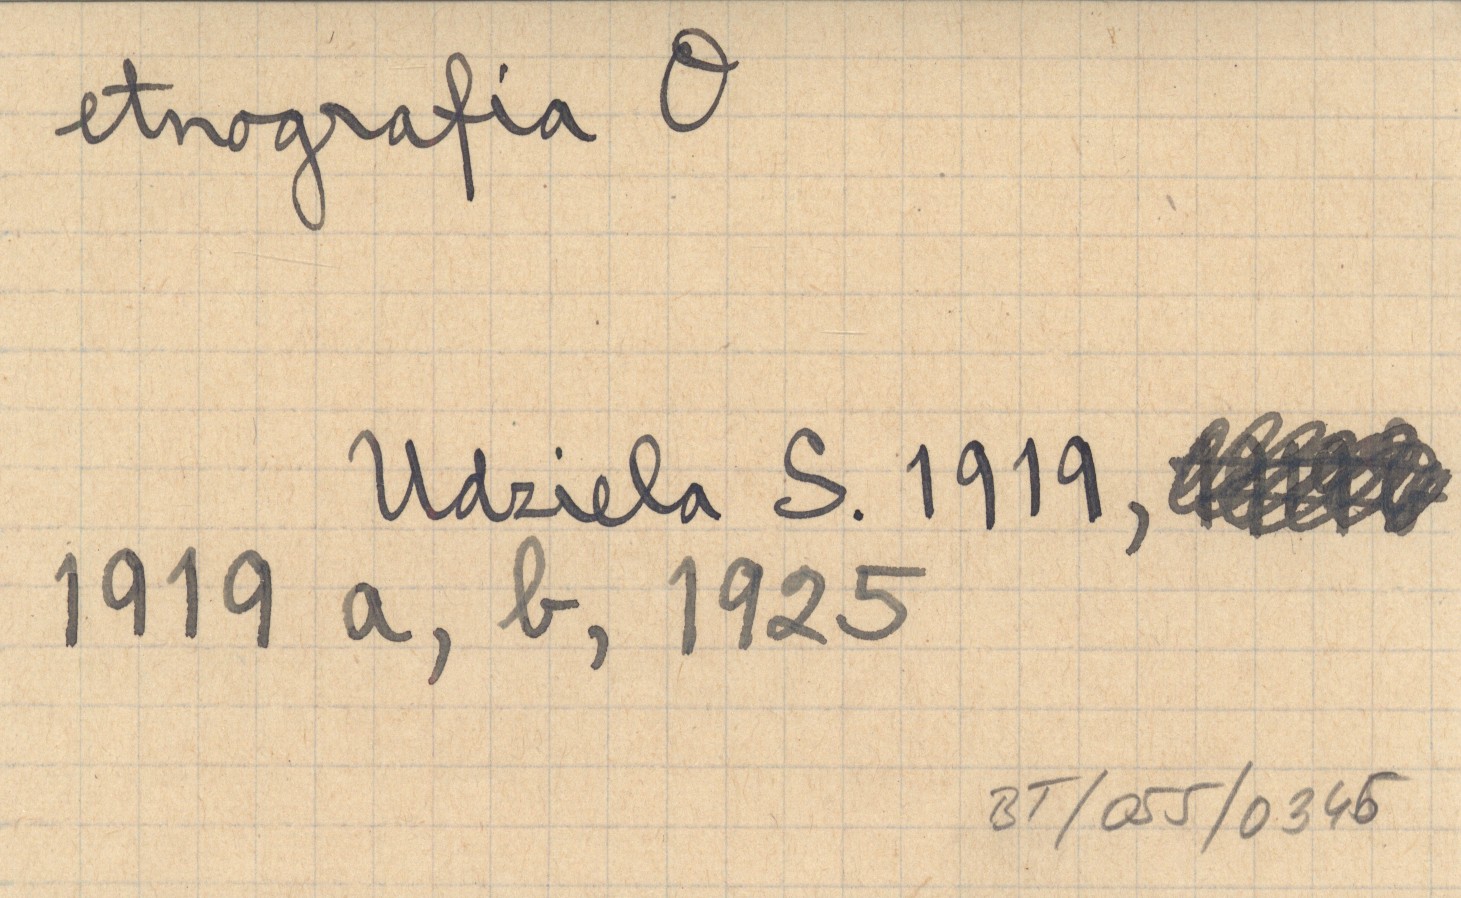 etnografia O
Udziela S. 1919,
1919 a, b, 1925
BT/055/0346